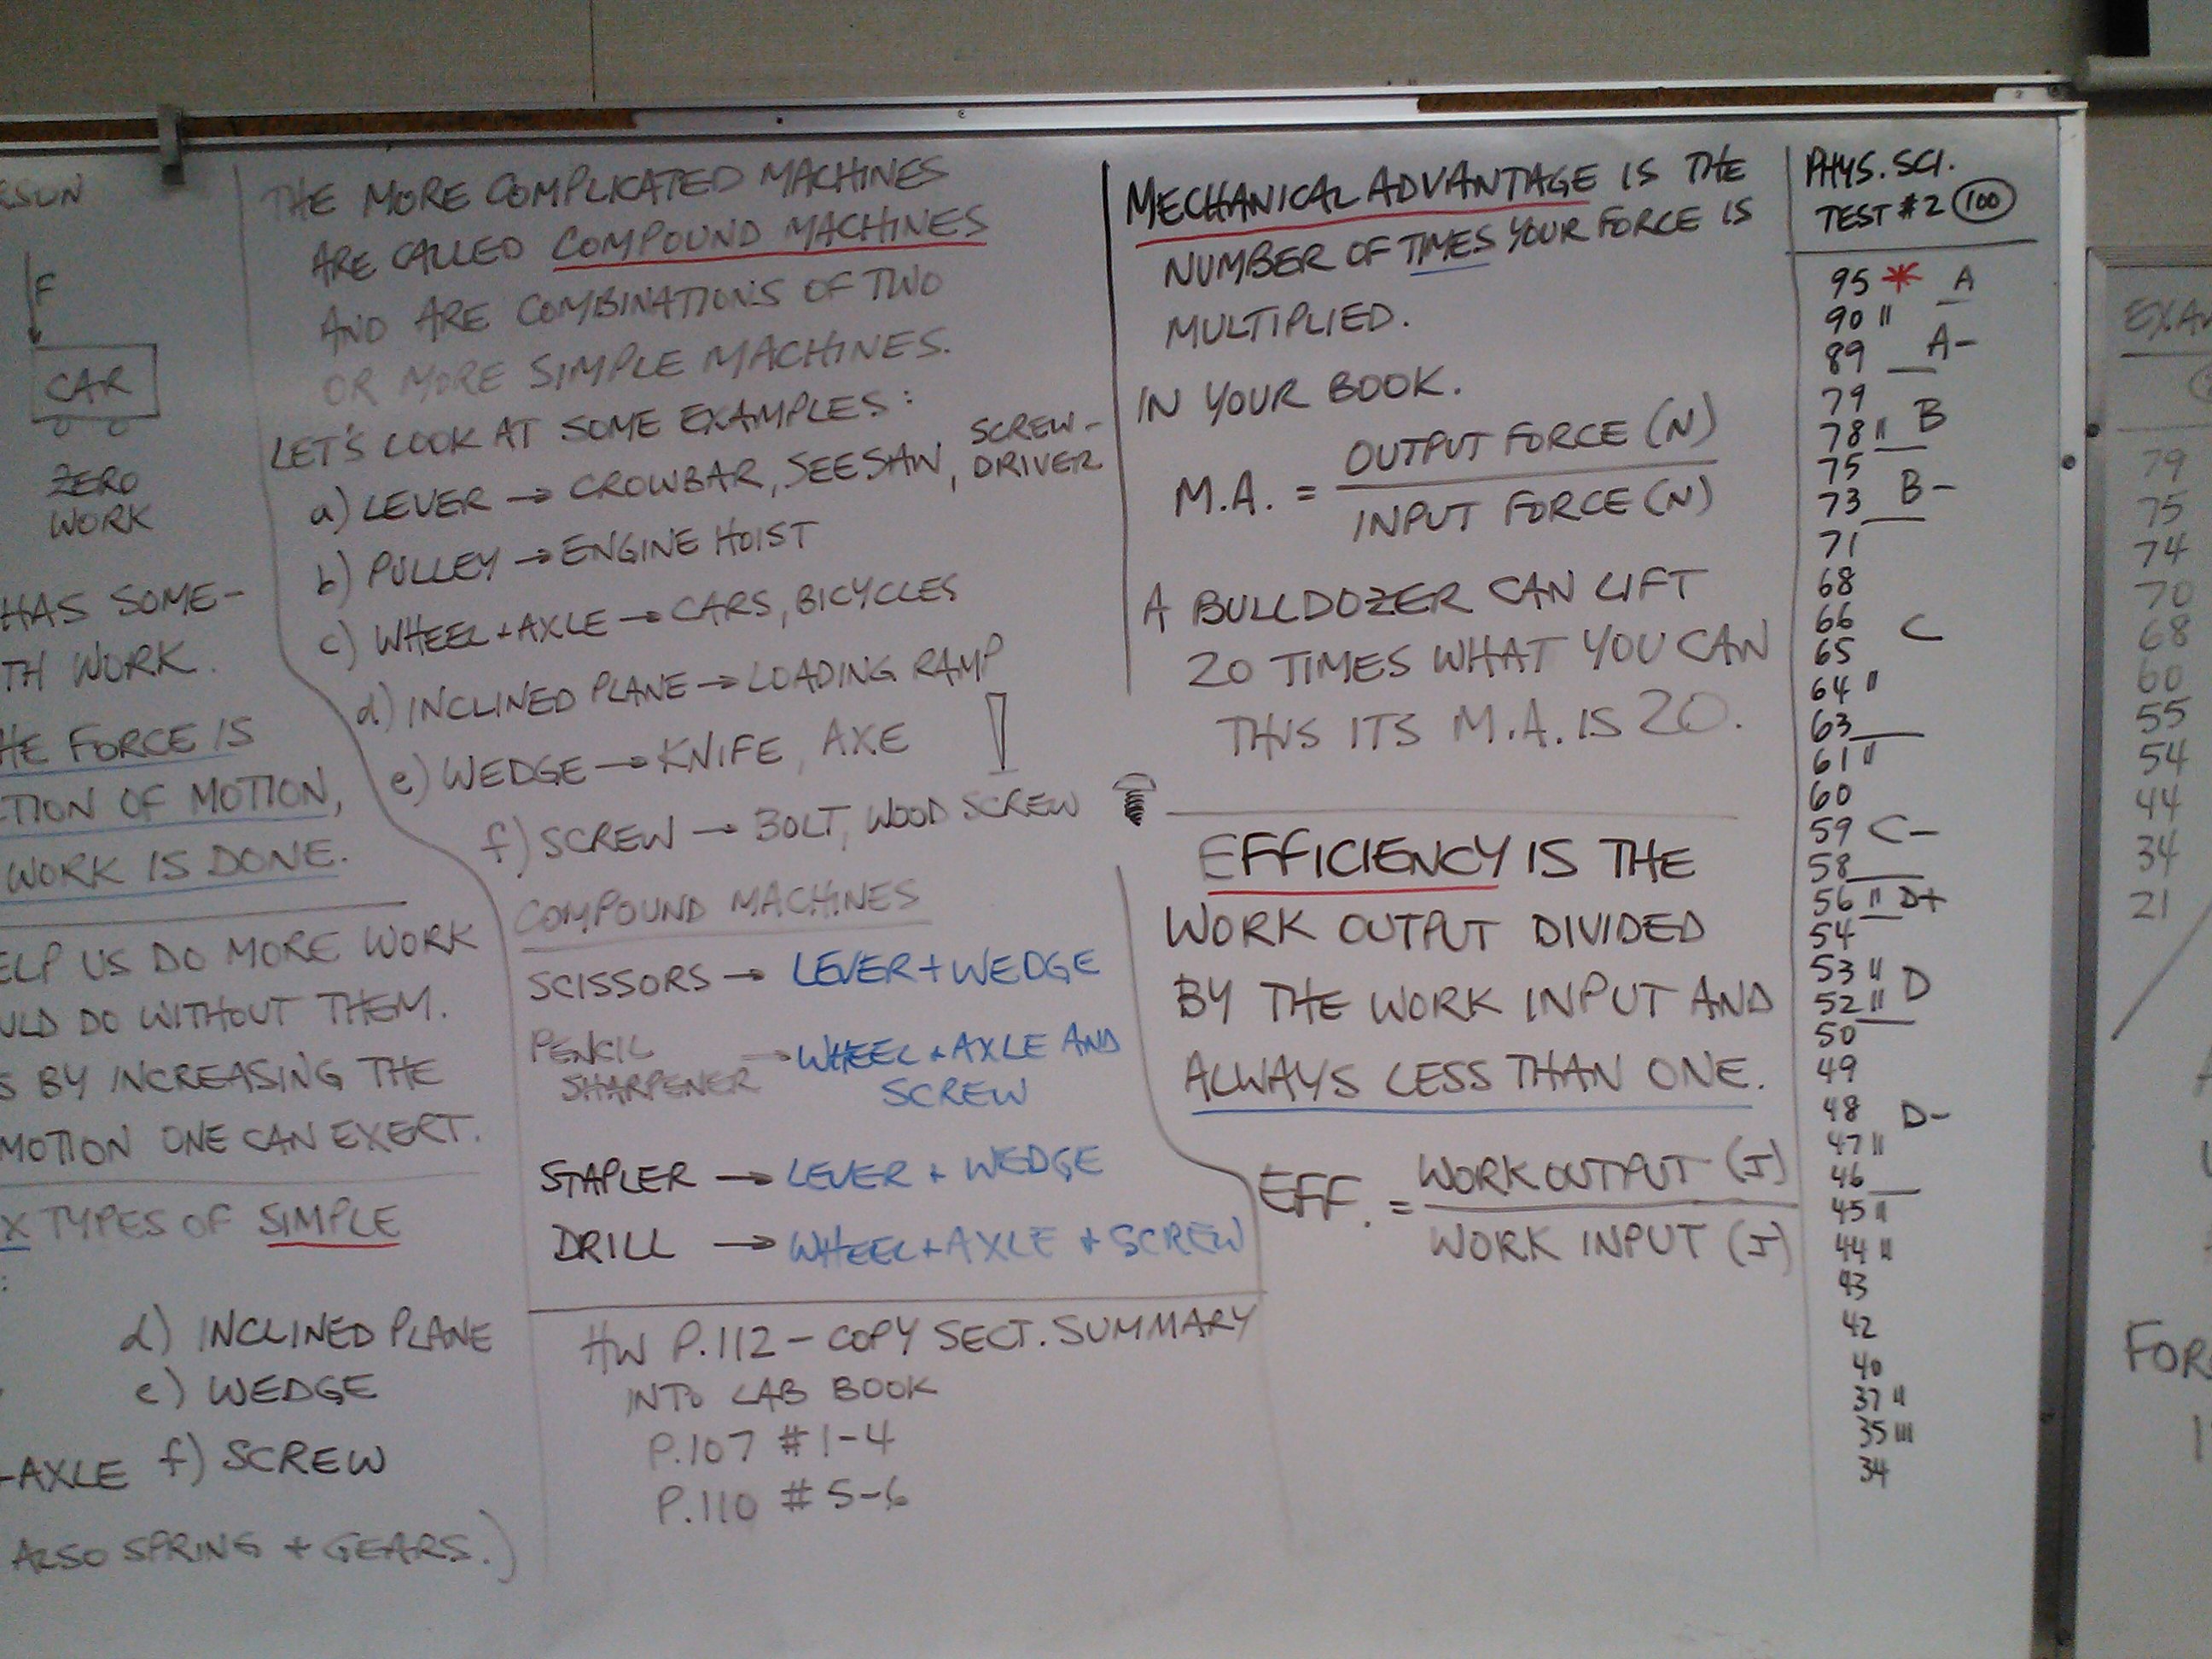 RSON
F
CAR
ZERO
WORK
HAS SOME-
TH WORK.
HE FORCE IS
CTION OF MOTION,
WORK IS DONE.
ELP US DO MORE WORK
ULD DO WITHOUT THEM.
S BY INCREASING THE
MOTION ONE CAN EXERT.
X TYPES OF SIMPLE
:
d) INCLINED PLANE
e) WEDGE
+AXLE f) SCREW
ALSO SPRING + GEARS.)
THE MORE COMPLICATED MACHINES
ARE CALLED COMPOUND MACHINES
AND ARE COMBINATIONS OF TWO
OR MORE SIMPLE MACHINES.
LET'S LOOK AT SOME EXAMPLES:
a) LEVER → CROWBAR, SEESAW, SCREW-
DRIVER
b) PULLEY → ENGINE HOIST
c) WHEEL+AXLE → CARS, BICYCLES
d) INCLINED PLANE → LOADING RAMP
e) WEDGE → KNIFE, AXE
f) SCREW → BOLT, WOOD SCREW
COMPOUND MACHINES
SCISSORS → LEVER + WEDGE
PENCIL
SHARPENER → WHEEL + AXLE AND
SCREW
STAPLER → LEVER + WEDGE
DRILL → WHEEL+AXLE + SCREW
HW P.112 - COPY SECT. SUMMARY
INTO LAB BOOK
P.107 # 1-4
P.110 # 5-6
MECHANICAL ADVANTAGE IS THE
NUMBER OF TIMES YOUR FORCE IS
MULTIPLIED.
IN YOUR BOOK.
M.A. = OUTPUT FORCE (N)
INPUT FORCE (N)
A BULLDOZER CAN LIFT
20 TIMES WHAT YOU CAN
THUS ITS M.A. IS 20.
EFFICIENCY IS THE
WORK OUTPUT DIVIDED
BY THE WORK INPUT AND
ALWAYS LESS THAN ONE.
EFF. = WORK OUTPUT (J)
WORK INPUT (J)
PHYS. SCI.
TEST #2 100
95 * A
90 II
89 A-
79
78 II B
75
73 B-
71
68
66
65 C
64 II
63
61 II
60
59 C-
58
56 II D+
54
53 II
52 II D
50
49
48 D-
47 II
46
45 II
44 II
43
42
40
37 II
35 III
34
EXA
79
75
74
70
68
60
55
54
44
34
21
FOR